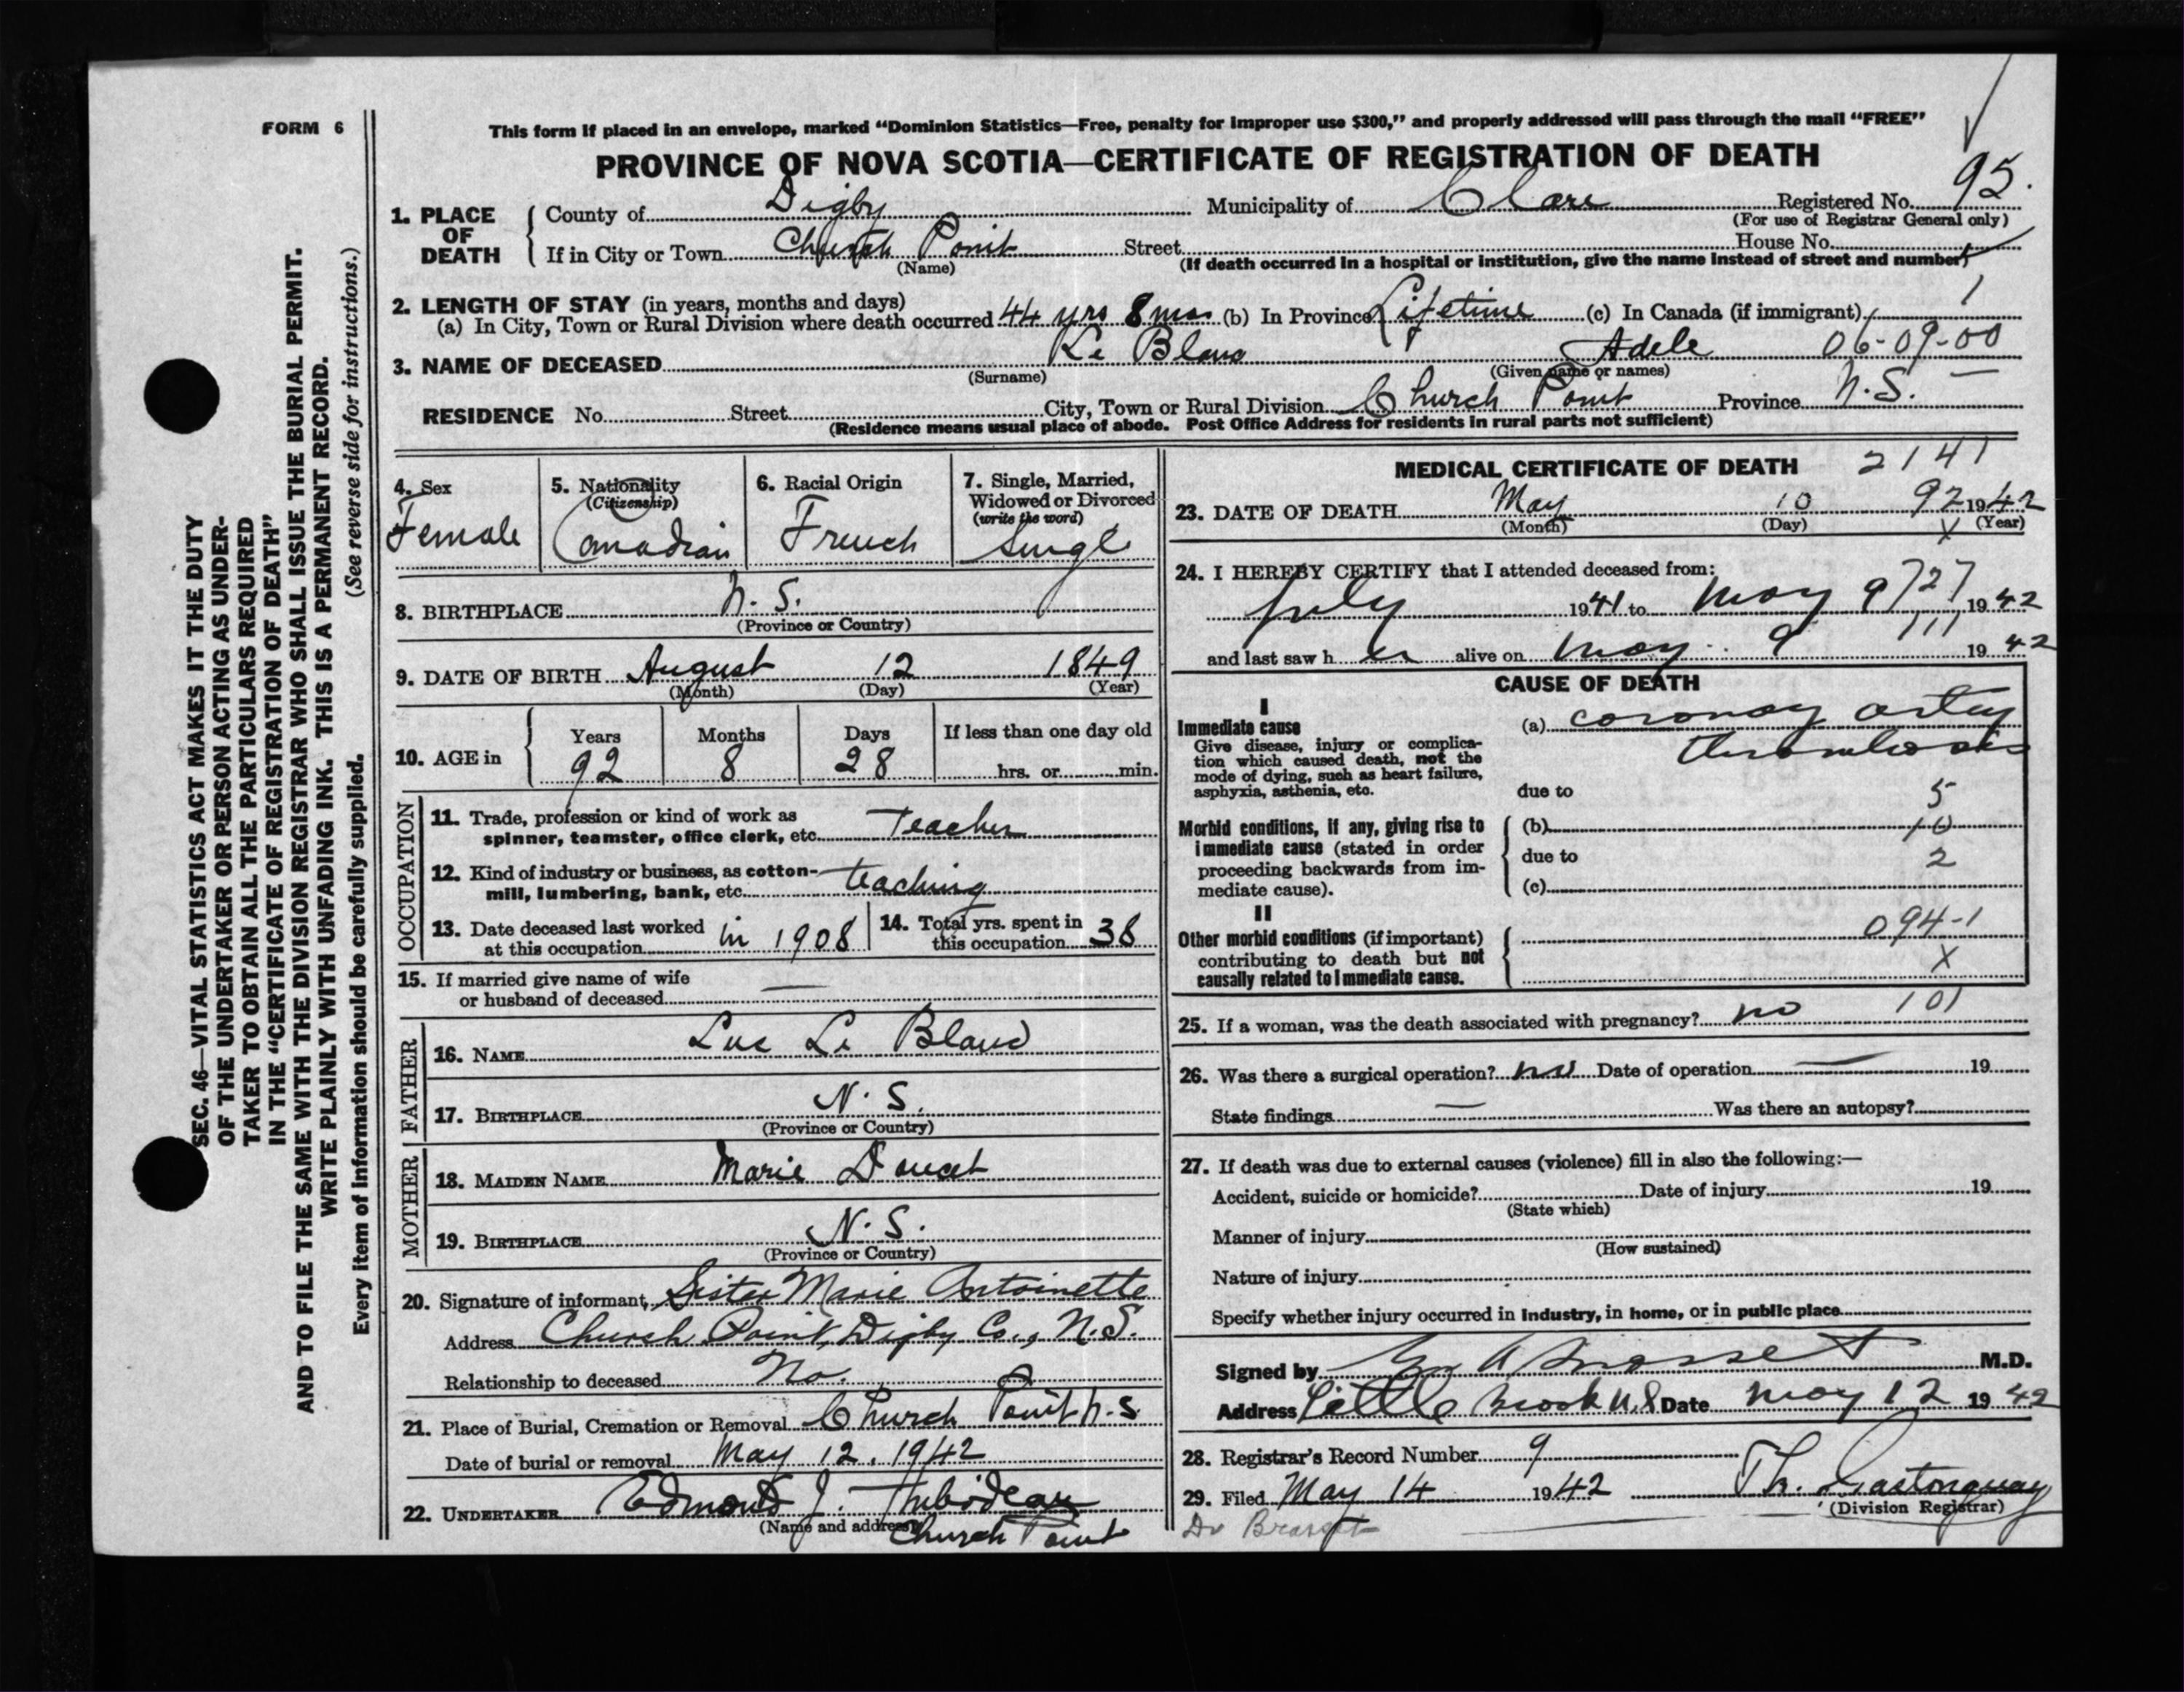 FORM 6
SEC. 46—VITAL STATISTICS ACT MAKES IT THE DUTY
OF THE UNDERTAKER OR PERSON ACTING AS UNDER-
TAKER TO OBTAIN ALL THE PARTICULARS REQUIRED
IN THE "CERTIFICATE OF REGISTRATION OF DEATH"
AND TO FILE THE SAME WITH THE DIVISION REGISTRAR WHO SHALL ISSUE THE BURIAL PERMIT.
WRITE PLAINLY WITH UNFADING INK. THIS IS A PERMANENT RECORD.
(See reverse side for instructions.)
Every item of information should be carefully supplied.
This form if placed in an envelope, marked "Dominion Statistics—Free, penalty for improper use $300," and properly addressed will pass through the mail "FREE"
PROVINCE OF NOVA SCOTIA—CERTIFICATE OF REGISTRATION OF DEATH
1. PLACE OF DEATH
County of Digby Municipality of Clare Registered No. 95.
(For use of Registrar General only)
If in City or Town Church Point Street House No.
(Name) (If death occurred in a hospital or institution, give the name instead of street and number)
2. LENGTH OF STAY (in years, months and days) 1
(a) In City, Town or Rural Division where death occurred 44 yrs 8 mos (b) In Province Lifetime (c) In Canada (if immigrant)
3. NAME OF DECEASED Le Blanc Adele 06-09-00
(Surname) (Given name or names)
RESIDENCE No. Street City, Town or Rural Division Church Point Province N.S.
(Residence means usual place of abode. Post Office Address for residents in rural parts not sufficient)
4. Sex
Female
5. Nationality
(Citizenship)
Canadian
6. Racial Origin
French
7. Single, Married,
Widowed or Divorced
(write the word)
Single
8. BIRTHPLACE N. S.
(Province or Country)
9. DATE OF BIRTH August 12 1849
(Month) (Day) (Year)
10. AGE in
Years Months Days If less than one day old
92 8 28 hrs. or min.
OCCUPATION
11. Trade, profession or kind of work as
spinner, teamster, office clerk, etc. Teacher
12. Kind of industry or business, as cotton-
mill, lumbering, bank, etc. teaching
13. Date deceased last worked
at this occupation in 1908
14. Total yrs. spent in
this occupation 38
15. If married give name of wife
or husband of deceased —
FATHER
16. NAME Luc Le Blanc
17. BIRTHPLACE N. S.
(Province or Country)
MOTHER
18. MAIDEN NAME Marie Doucet
19. BIRTHPLACE N. S.
(Province or Country)
20. Signature of informant Sister Marie Antoinette
Address Church Point, Digby Co., N.S.
Relationship to deceased No.
21. Place of Burial, Cremation or Removal Church Point N.S
Date of burial or removal May 12, 1942
22. UNDERTAKER Edmond J. Thibodeau
(Name and address)
Church Point
MEDICAL CERTIFICATE OF DEATH 2141
23. DATE OF DEATH May 10 92 1942
(Month) (Day) X (Year)
24. I HEREBY CERTIFY that I attended deceased from:
July 1941 to May 9 727 1942
111
and last saw her alive on May 9 1942
CAUSE OF DEATH
I
Immediate cause
Give disease, injury or complica-
tion which caused death, not the
mode of dying, such as heart failure,
asphyxia, asthenia, etc.
(a) coronary artery
thrombosis
due to 5
Morbid conditions, if any, giving rise to
immediate cause (stated in order
proceeding backwards from im-
mediate cause).
(b) 10
due to 2
(c)
II
Other morbid conditions (if important)
contributing to death but not
causally related to immediate cause.
094-1
X
101
25. If a woman, was the death associated with pregnancy? no
26. Was there a surgical operation? no Date of operation — 19
State findings — Was there an autopsy?
27. If death was due to external causes (violence) fill in also the following:—
Accident, suicide or homicide? Date of injury 19
(State which)
Manner of injury
(How sustained)
Nature of injury
Specify whether injury occurred in industry, in home, or in public place
Signed by M.D.
Address Little Brook N.S Date May 12 1942
28. Registrar's Record Number 9
29. Filed May 14 1942 Th. Gastonguay
(Division Registrar)
Dr